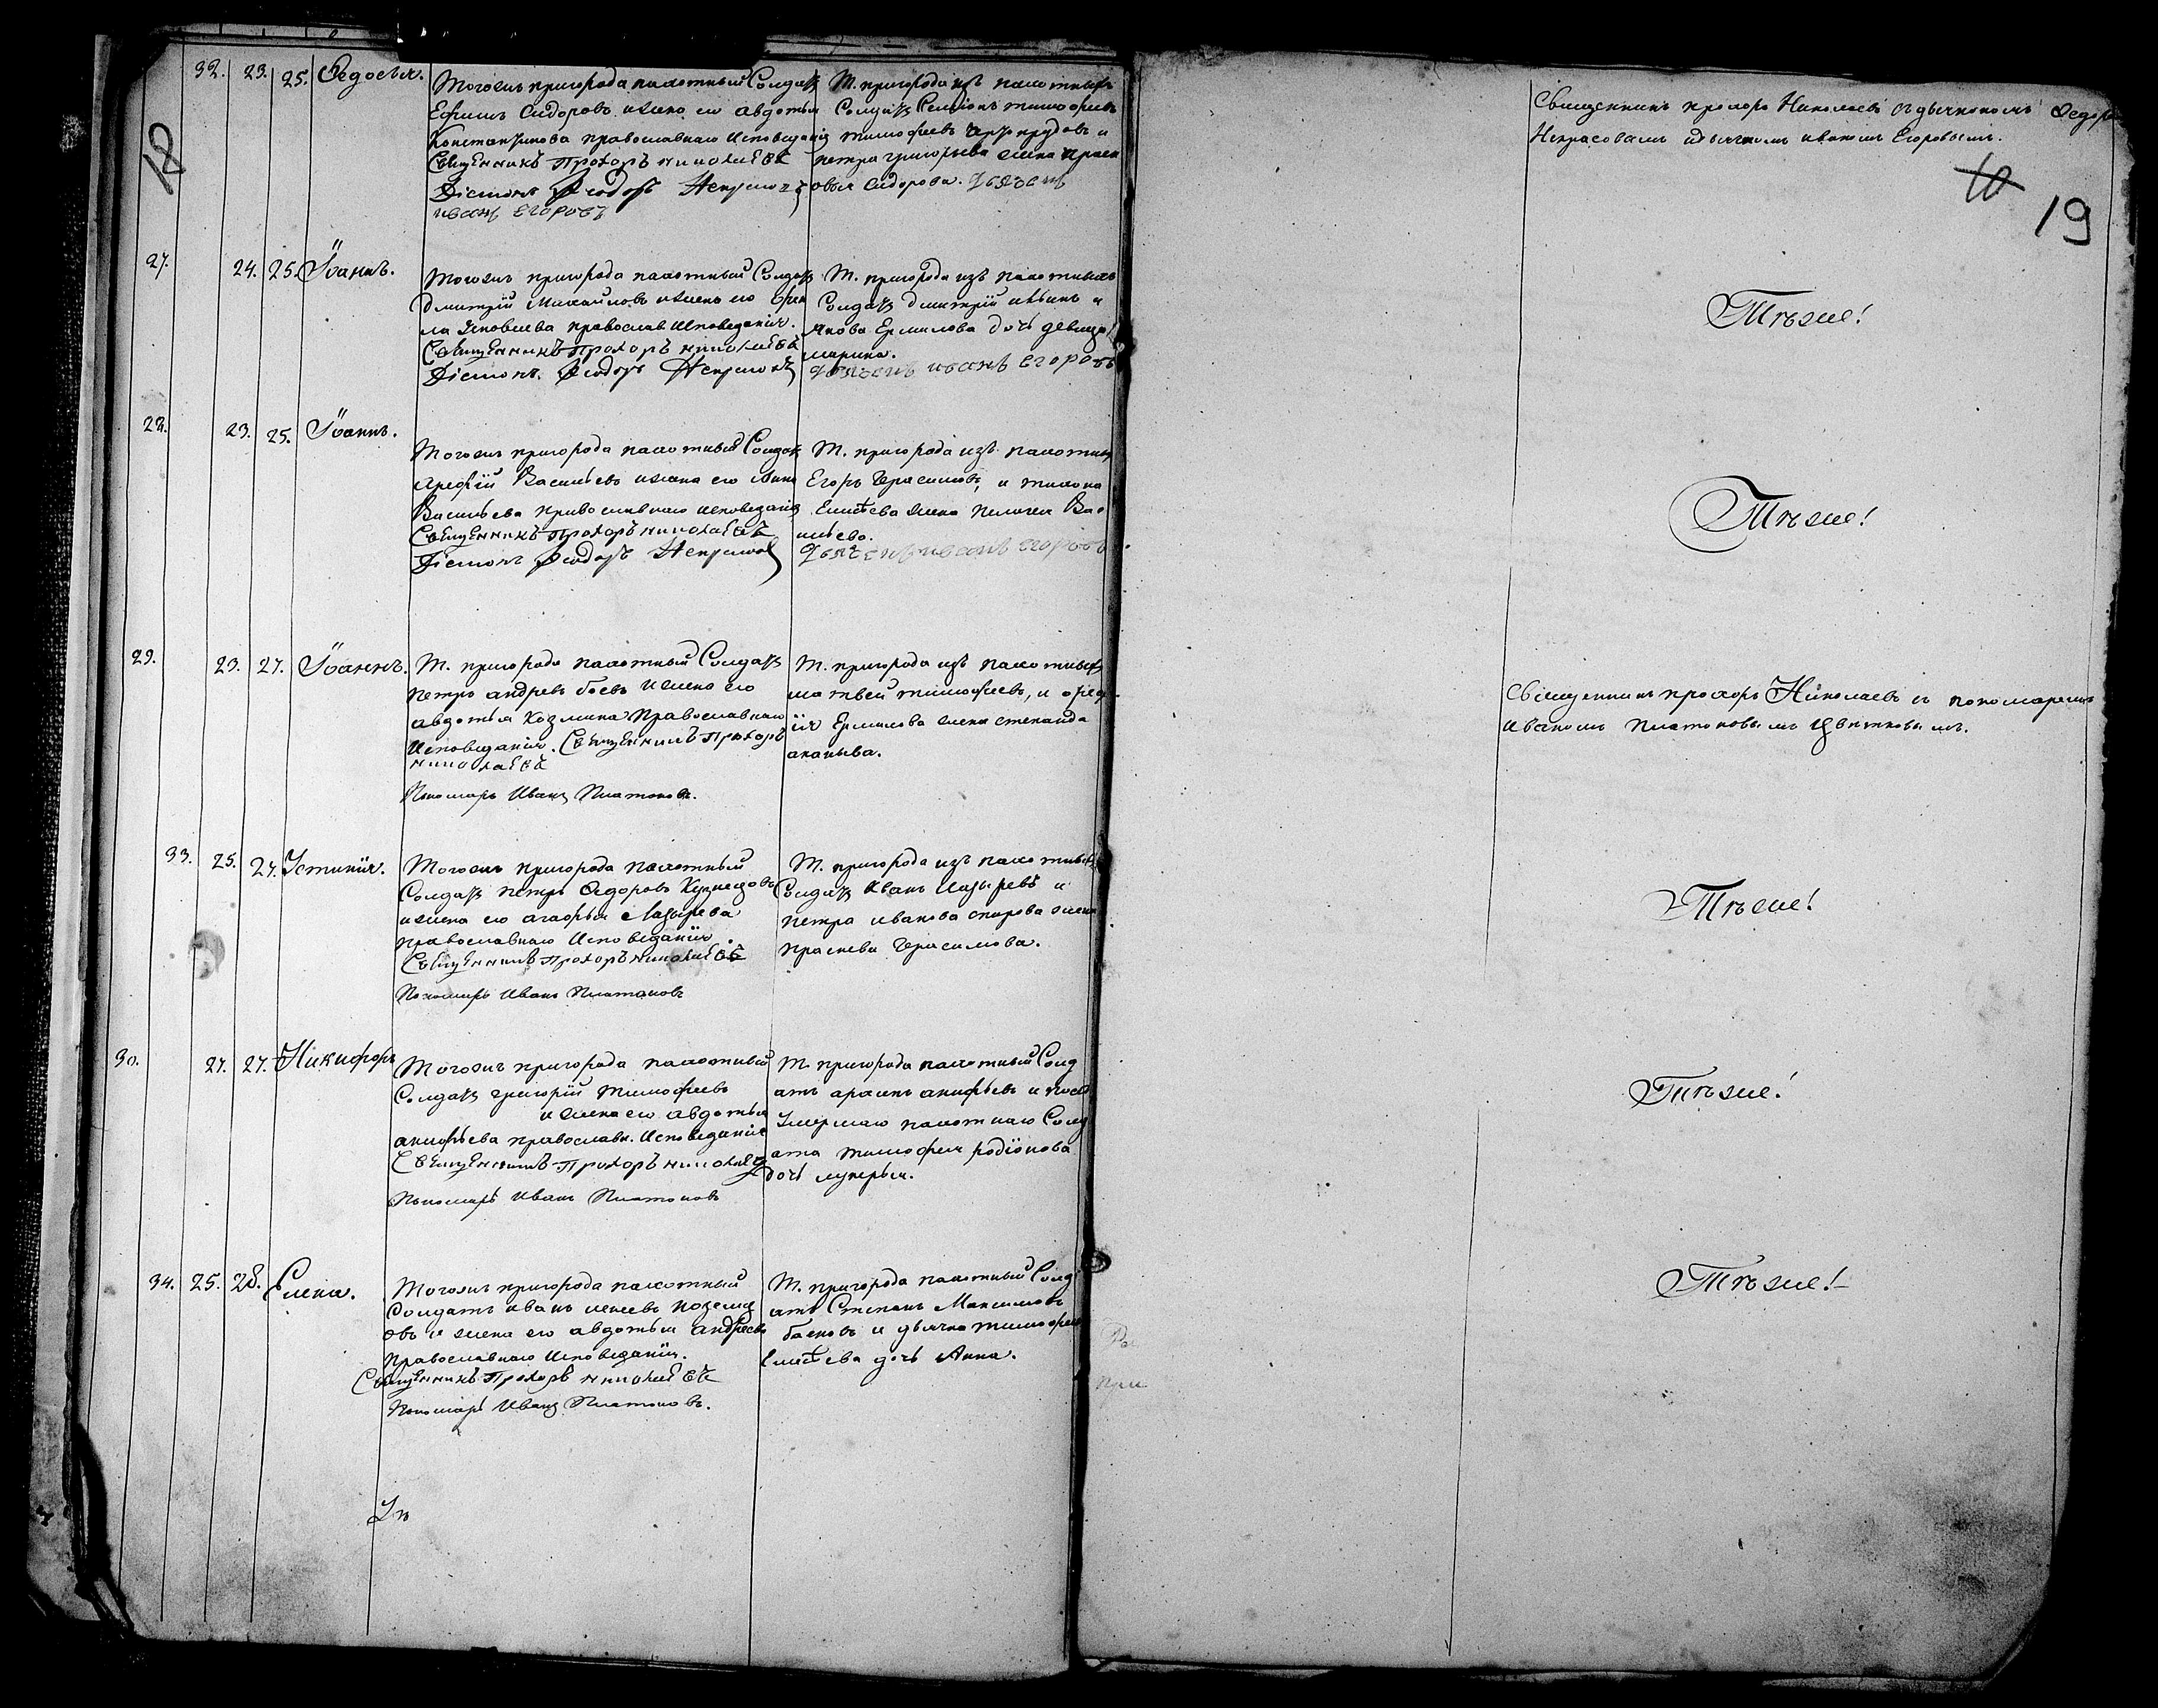 18
32. 23. 25. Федосья.
Тогожъ пригорода пахотный Солдатъ
Ефимъ Сидоровъ и жена его авдотья
Константинова православнаго исповеданія
Священникъ Прохоръ николаевъ
Діаконъ Феодоръ Некрасовъ
иванъ егоровъ
Т. пригорода изъ пахотныхъ
Солдатъ тимофеевъ
тимофеевъ и
петра григорьева жена праск
овья сидорова. дьячекъ
27. 24. 25. Іоаннъ.
Тогожъ пригорода пахотный Солдатъ
дмитрій Михайловъ и жена его
Яковлева православ исповеданія.
Священникъ Прохоръ николаевъ
Діаконъ. Феодоръ Некрасовъ
Т. пригорода изъ пахотныхъ
Солдатъ дмитрій ильинъ и
якова Ермилова дочь девица
марина.
дьячекъ иванъ егоровъ
28. 23. 25. Іоаннъ.
Тогожъ пригорода пахотный Солдатъ
арефій Васильевъ и жена его Анна
Васильева православнаго исповеданія
Священникъ Прохоръ николаевъ
Діаконъ Феодоръ Некрасовъ
Т. пригорода изъ пахотныхъ
Егоръ Герасимовъ, и
Елисѣева жена Пелагея Ва
дьячекъ иванъ егоровъ
29. 23. 27. Іоаннъ.
Т. пригорода пахотный Солдатъ
петръ андреевъ и жена его
авдотья Козмина Православнаго
Исповеданія. Священникъ Прохоръ
николаевъ
Пономарь Иванъ Платоновъ.
Т. пригорода изъ пахотныхъ
матвей тимофеевъ, и
Ермилова жена степанида
ананьева.
33. 25. 27. Устинія.
Тогожъ пригорода пахотный
Солдатъ петръ Федоровъ Кузнецовъ
и жена его агафья Лазырева
православнаго Исповеданія.
Священникъ Прохоръ николаевъ
Пономарь Иванъ Платоновъ
Т. пригорода изъ пахотныхъ
Солдатъ Иванъ Лазыревъ и
петра иванова жена
прасковья Герасимова.
30. 27. 27. Никифоръ
Тогожъ пригорода пахотный
Солдатъ григорій тимофеевъ
и жена его авдотья
анофрьева православн. Исповеданія
Священникъ Прохоръ николаевъ
Пономарь Иванъ Платоновъ
Т. пригорода пахотный Солд
атъ и
Умершаго пахотнаго Солд
ата тимофея родіонова
дочь лукерья.
34. 25. 28. Елена.
Тогожъ пригорода пахотный
Солдатъ иванъ
овъ и жена его авдотья андреева
православнаго Исповеданія.
Священникъ Прохоръ николаевъ
Пономарь Иванъ Платоновъ.
Т. пригорода пахотный Солд
атъ Степанъ Максимовъ
и дьячка тимофея
Елисѣева дочь Анна.
Священникъ прохоръ Николаевъ съ дьякономъ Федор
Некрасовымъ и дьячкомъ иваномъ Егоровымъ.
10
19
Тѣже!
Тѣже!
Священникъ прохоръ Николаевъ съ пономаремъ
Иваномъ Платоновымъ Цвѣтковымъ.
Тѣже!
Тѣже!
Тѣже!